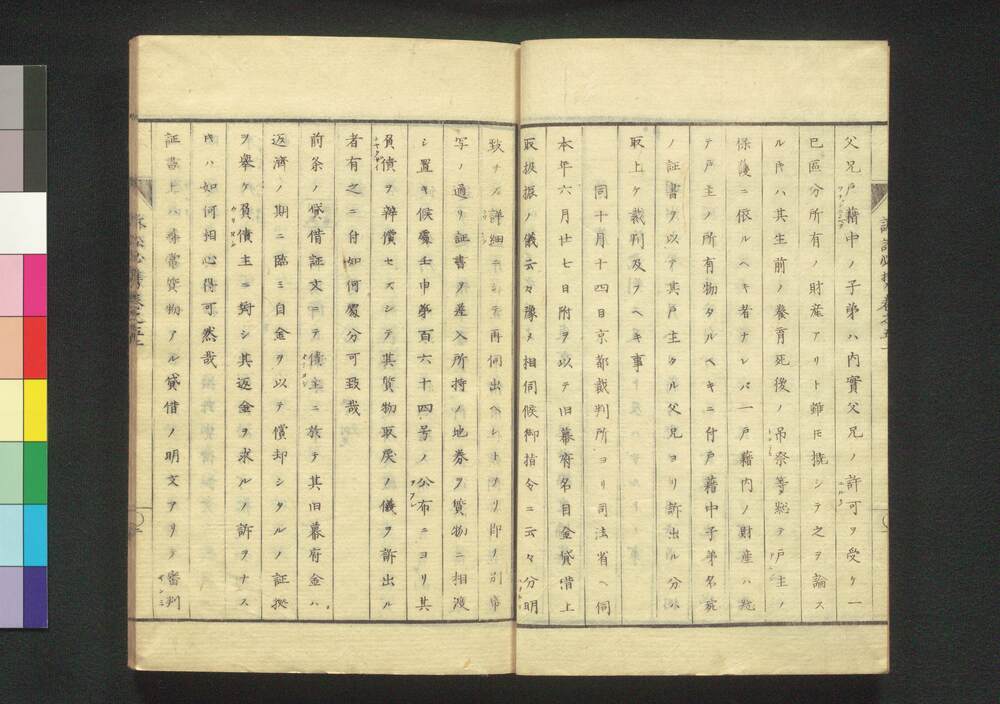 父兄戸籍中ノ子弟ハ内實父兄ノ許可ヲ受ケ一
已區分所有ノ財産アリト雖𪜈概シテ之ヲ論ス
ルキハ其生前ノ養育死後ノ吊祭等総テ戸主ノ
保護ニ依ルヘキ者ナレハ一戸藉内ノ財産ハ総
テ戸主ノ所有物タルヘキニ付戸藉中子弟名宛
ノ証書ヲ以テ其戸主タル父兄ヨリ訴出ル分ハ
取上ケ裁判及フヘキ事
同十月十四日京都裁判所ヨリ司法省ヘ伺
本年六月廿七日附ヲ以テ旧幕府名目金貸借上
取扱振ノ儀云々豫メ相伺候御指令ニ云々分明
致サス詳細ニシテ再伺出ヘシトアリ即ノ別帋
写ノ通リ証書ヲ差入所持ノ地券ヲ質物ニ相渡
シ置キ候處壬申第百六十四号ノ公布ニヨリ其
負債ヲ辨償セスシテ其質物取戻ノ儀ヲ訴出ル
者有之ニ付如何處分可致哉
前条ノ貸借証文ニテ債主ニ於テ其旧幕府金ハ
返済ノ期ニ臨ミ自金ヲ以テ償却シタルノ証拠
ヲ擧ケ負債主ニ対シ其返金ヲ求ルノ訴ヲナス
キハ如何相心得可然哉
証書上ハ尋常質物アル貸借ノ明文アリテ審判